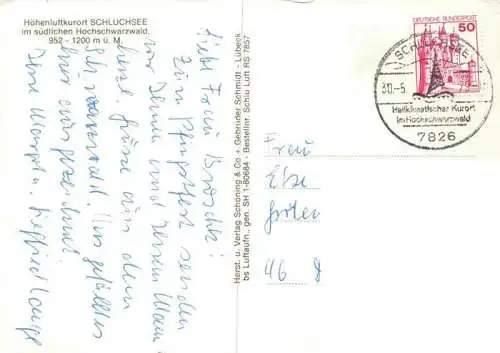 Höhenluftkurort SCHLUCHSEE
im südlichen Hochschwarzwald,
952 - 1200 m ü. M.
Liebe Frau
Zum Pfingstfest senden
wir Ihnen und Ihrem Mann
liebe Grüße aus dem
Schwarzwald. Uns gefällt es
hier ausgezeichnet.
Ihre Margot u. Siegfried
Herst. u. Verlag Schöning & Co + Gebrüder Schmidt - Lübeck
bs Luftaufn., gen. SH 1-80684 - Bestellnr. Schlu Luft RS 7857
DEUTSCHE BUNDESPOST
50
SCHLUCHSEE
30.-5.
Heilklimatischer Kurort
im Hochschwarzwald
7826
Frau
Else
46